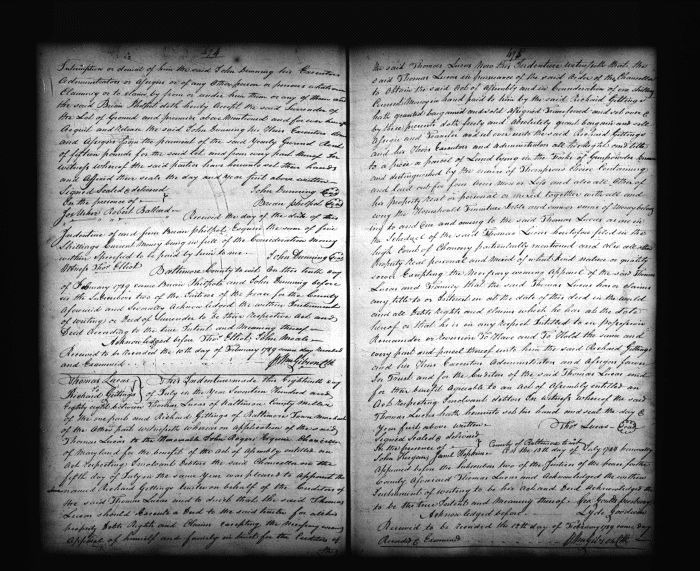 474
Interruption or denial of him the said John Dunning his Executors
Administrators or Assigns or of any other person or persons whatsoever
Claiming or to claim by from or under him them or any of them and
the said Brian Philpot doth hereby Accept the said Surrender of
the Lot of Ground and premises above Mentioned and for ever hereby
Acquit and Release the said John Dunning his Heirs Executors Adm
and Assigns from the payment of the said Yearly Ground Rent
of fifteen pounds for the said Lot and from every part thereof In
witness whereof the said parties have hereunto set their hands
and Affixed their seals the day and Year first above written
Signed Sealed & delivered
In the presence of
John Dunning
Brian philpot
Robert Ballard
Received the day of the date of this
Indenture of and from Brian philpot Esquire the sum of five
Shillings Current Money being in full of the Consideration Money
within Specified to be paid by him to me
John Dunning
Witness Thos Elliot
Baltimore County to wit. On this tenth day
of February 1789 came Brian Philpot and John Dunning before
us the Subscribers two of the Justices of the peace for the County
Aforesaid and Severally Acknowledged the within Instrument
of writing or Deed of Surrender to be their respective Act and
Deed According to the true Intent and Meaning thereof
Acknowledged before Thos Elliot, John Moale
Received to be recorded the 10th day of February 1789 same day Recorded
and Examined
Wm Gibson Clk
Thomas Lucas
Richard Gittings
This Indenture made this Eighteenth day
of July in the Year Seventeen Hundred and
Eighty eight between Thomas Lucas of Baltimore County
of the one part and Richard Gittings of Baltimore Town Merchant
of the other part witnesseth whereas on application of the said
Thomas Lucas to the Honorable John Rogers Esquire Chancellor
of Maryland for the benefit of the Act of Assembly entitled an
Act respecting Insolvent Debtors the said Chancellor on the
fifth day of July in the same Year was pleased to Appoint the
said Richard Gittings trustee in behalf of the Creditors of
the said Thomas Lucas and to direct that the said Thomas
Lucas should Execute a Deed to the said trustee for all his
property Debts Rights and Claims excepting the Necessary wearing
Apparel of himself and family in trust for the Creditors of
475
the said Thomas Lucas Now this Indenture witnesseth that the
said Thomas Lucas in pursuance of the said Order of the Chancellor
to Attain the said Act of Assembly and in Consideration of one shilling
Current Money in hand paid to him by the said Richard Gittings
hath granted bargained and sold aliened
by these presents doth freely and Absolutely grant bargain and sell
Assign and Transfer and set over unto the said Richard Gittings
and his Heirs Executors and Administrators all his Right and title
to a piece or parcel of Land lying in the Forks of Gunpowder
and distinguished by the name of
and laid out for four Acres More or Less and also all Other of
his property real or personal or mixed together with all and
every the Household Furniture Debts and sums of Money belong
ing to and due and owing to the said Thomas Lucas as are in
the Schedule of the said Thomas Lucas heretofore filed in the
high Court of Chancery particularly mentioned and also all other
Property real personal and mixed of what kind nature or quality
soever Excepting the Necessary wearing Apparel of the said Thomas
Lucas and Family that the said Thomas Lucas has a Claim
any title to or Interest in at the date of this deed in the world
and all Debts Rights and claims which he has at the date
hereof or that he is in any respect Entitled to in possession
Remainder or reversion To Have and To Hold the same and
every part and parcel thereof unto him the said Richard Gittings
and his Heirs Executors Administrators and Assigns forever
In Trust and for the Creditors of the said Thomas Lucas and
for their benefit agreeable to an Act of Assembly entitled an
Act respecting Insolvent debtors In Witness whereof the said
Thomas Lucas hath hereunto set his hand and seal the day &
Year first above written
Thos Lucas
Signed Sealed & delivered
In the presence of
County of Baltimore to wit
On the 18th day of July 1788
Appeared before the Subscribers two of the Justices of the peace for the
County Aforesaid Thomas Lucas and Acknowledged the within
Instrument of writing to be his Act and Deed
to be the true Intent and Meaning thereof
Acknowledged before
Lyde Goodwin
Received to be recorded the 10th day of February 1789 same day
Recorded & Examined
Wm Gibson Clk